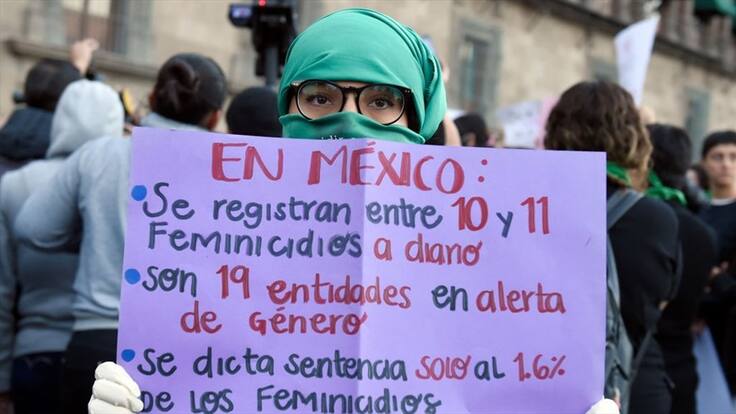 EN MÉXICO:
• Se registran entre 10 y 11
Feminicidios a diario
• son 19 entidades en alerta
de Género
• Se dicta sentencia solo al 1.6%
De los Feminicidios